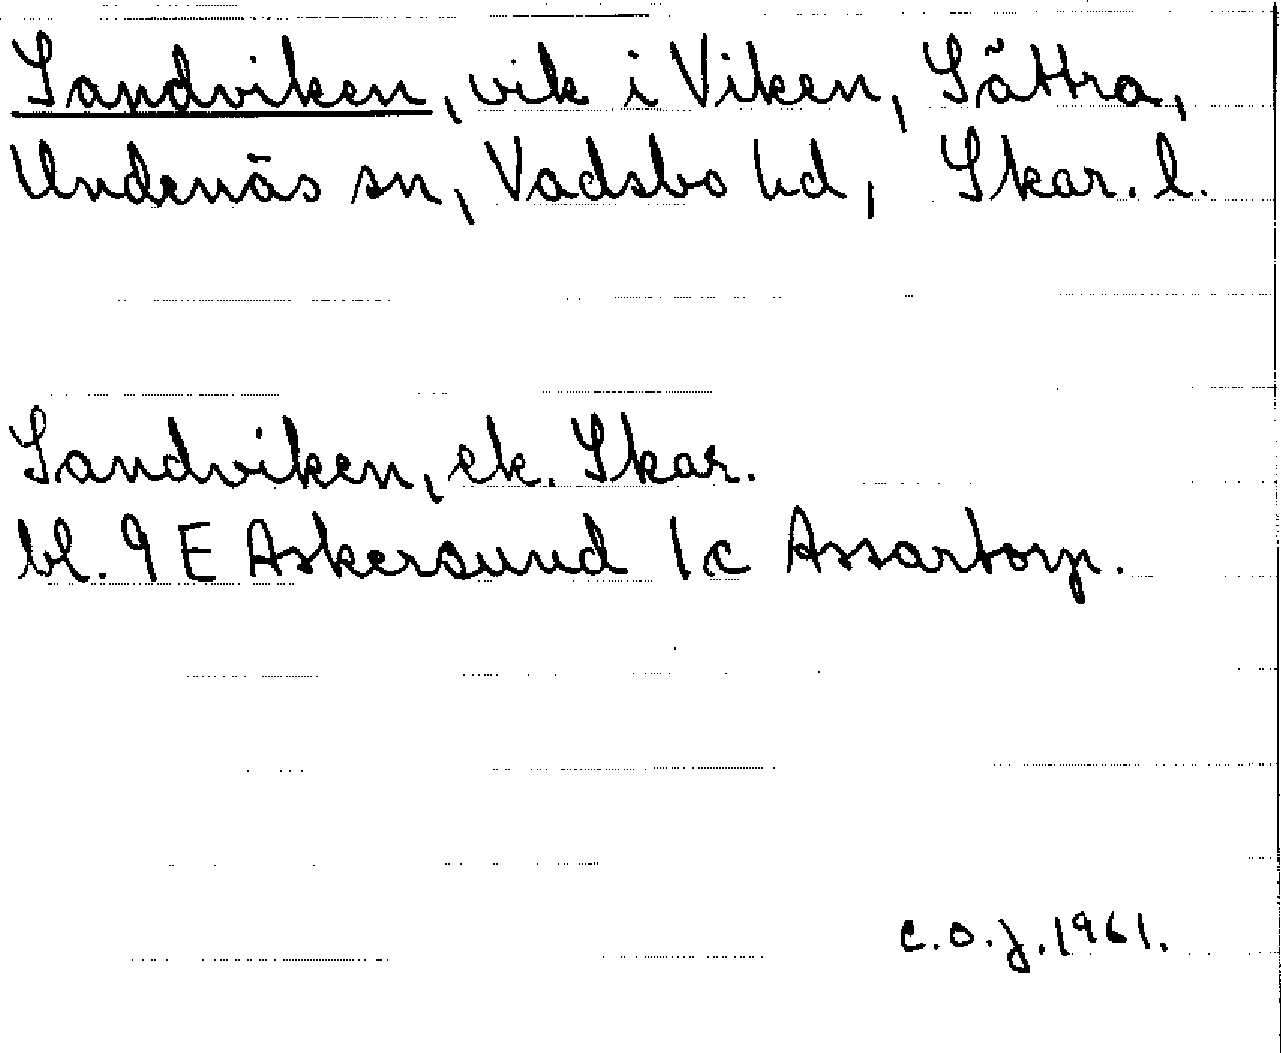 Sandviken, vik i Viken, Sätra,
Undenäs sn, Vadsbo hd, Skar. l.
Sandviken, ek. Skar.
bl. 9 E Askersund 1c Assartorp.
C.O.J. 1961.